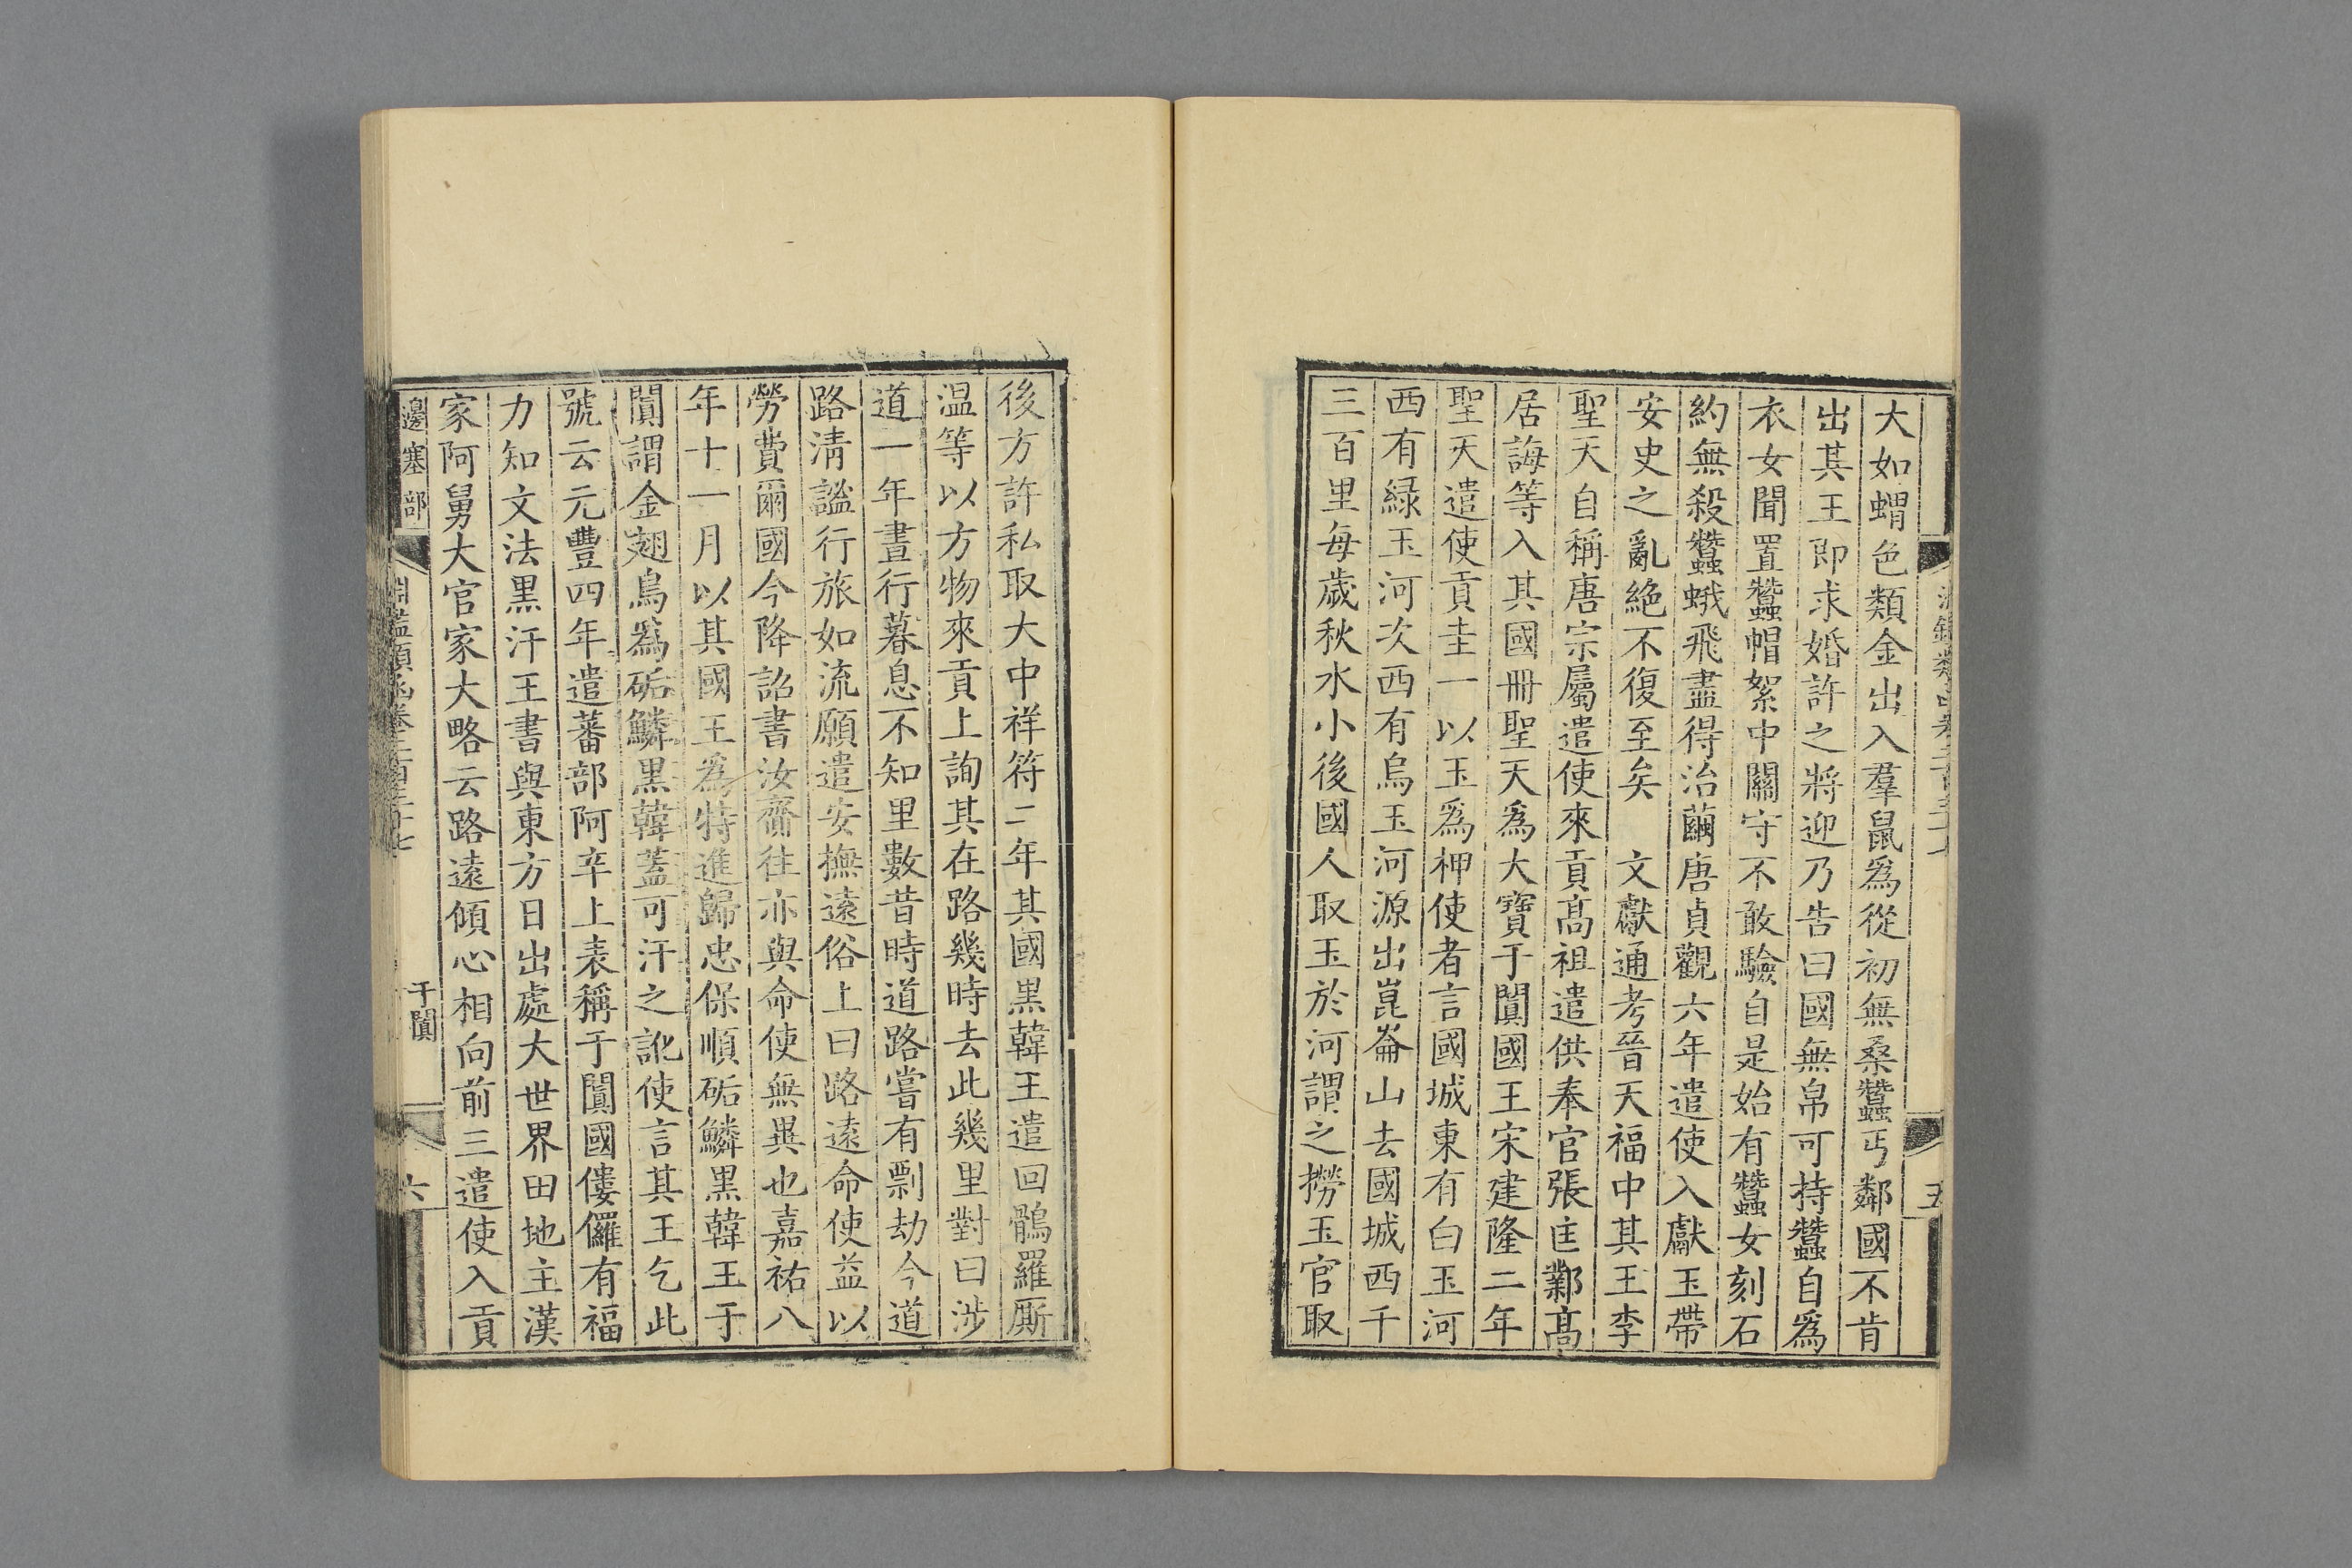 大如蝟色類金出入羣鼠爲從初無桑蠶丐鄰國不肯
出其王即求婚許之將迎乃告曰國無帛可持蠶自爲
衣女聞置蠶帽絮中關守不敢驗自是始有蠶女刻石
約無殺蠶蛾飛盡得治繭唐貞觀六年遣使入獻玉帶
安史之亂絶不復至矣　文獻通考晉天福中其王李
聖天自稱唐宗屬遣使來貢髙祖遣供奉官張匡鄴髙
居誨等入其國冊聖天爲大寶于闐國王宋建隆二年
聖天遣使貢圭一以玉爲柙使者言國城東有白玉河
西有緑玉河次西有烏玉河源出崑崙山去國城西千
三百里每歳秋水小後國人取玉於河謂之撈玉官取
五
後方許私取大中祥符二年其國黒韓王遣回鶻羅厮
温等以方物來貢上詢其在路幾時去此幾里對曰涉
道一年晝行暮息不知里數昔時道路嘗有剽劫今道
路淸謐行旅如流願遣安撫遠俗上曰路遠命使益以
勞費爾國今降詔書汝齎往亦與命使無異也嘉祐八
年十一月以其國王爲特進歸忠保順砳鱗黒韓王于
闐謂金翅烏爲砳鱗黒韓蓋可汗之訛使言其王乞此
號云元豐四年遣蕃部阿辛上表稱于闐國僂儸有福
力知文法黒汗王書與東方日出處大世界田地主漢
家阿舅大官家大略云路遠傾心相向前三遣使入貢
邊塞部
淵鑑類函卷二百三十七
于闐
六